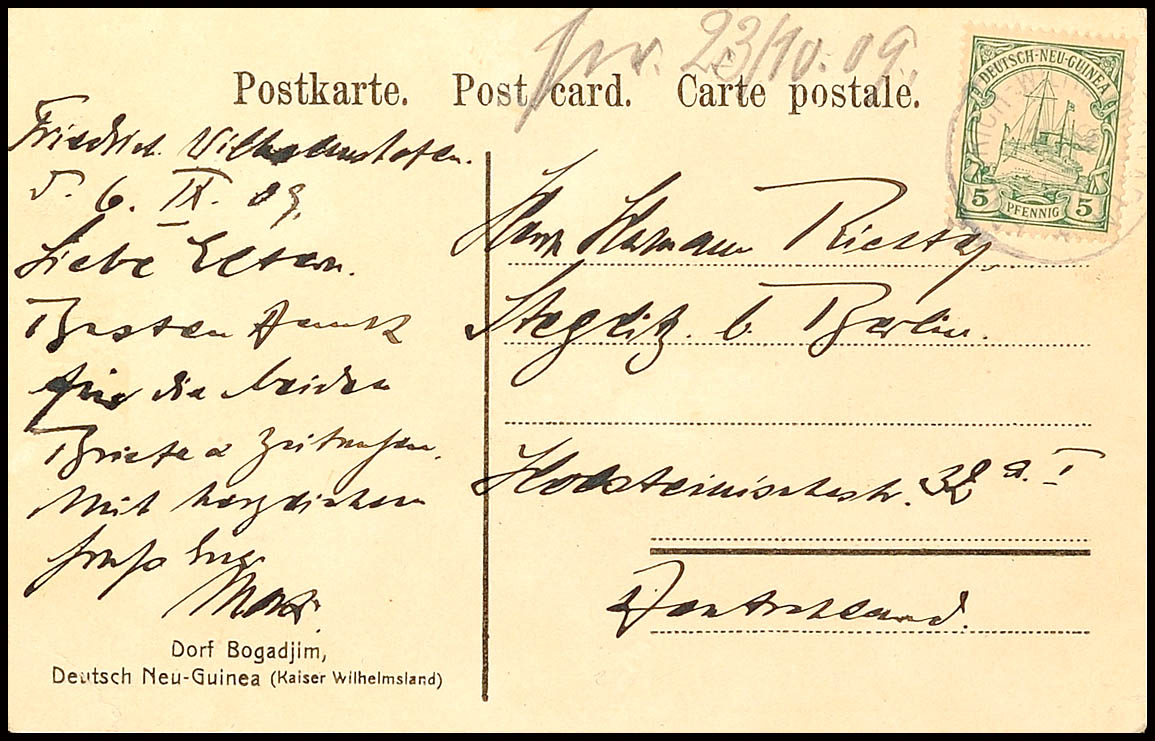 frv. 23/10.09.
Postkarte. Post card. Carte postale.
DEUTSCH-NEU-GUINEA
5 PFENNIG 5
Friedrich Wilhelmshafen.
d. 6. IX. 09.
Liebe Eltern.
Besten Dank
für die beiden
Briefe u Zeitungen.
Mit herzlichem
Gruß Euer
Max.
Herrn Hermann
Steglitz b. Berlin.
Holsteinischestr. 32 a. I
Deutschland.
Dorf Bogadjim,
Deutsch Neu-Guinea (Kaiser Wilhelmsland)